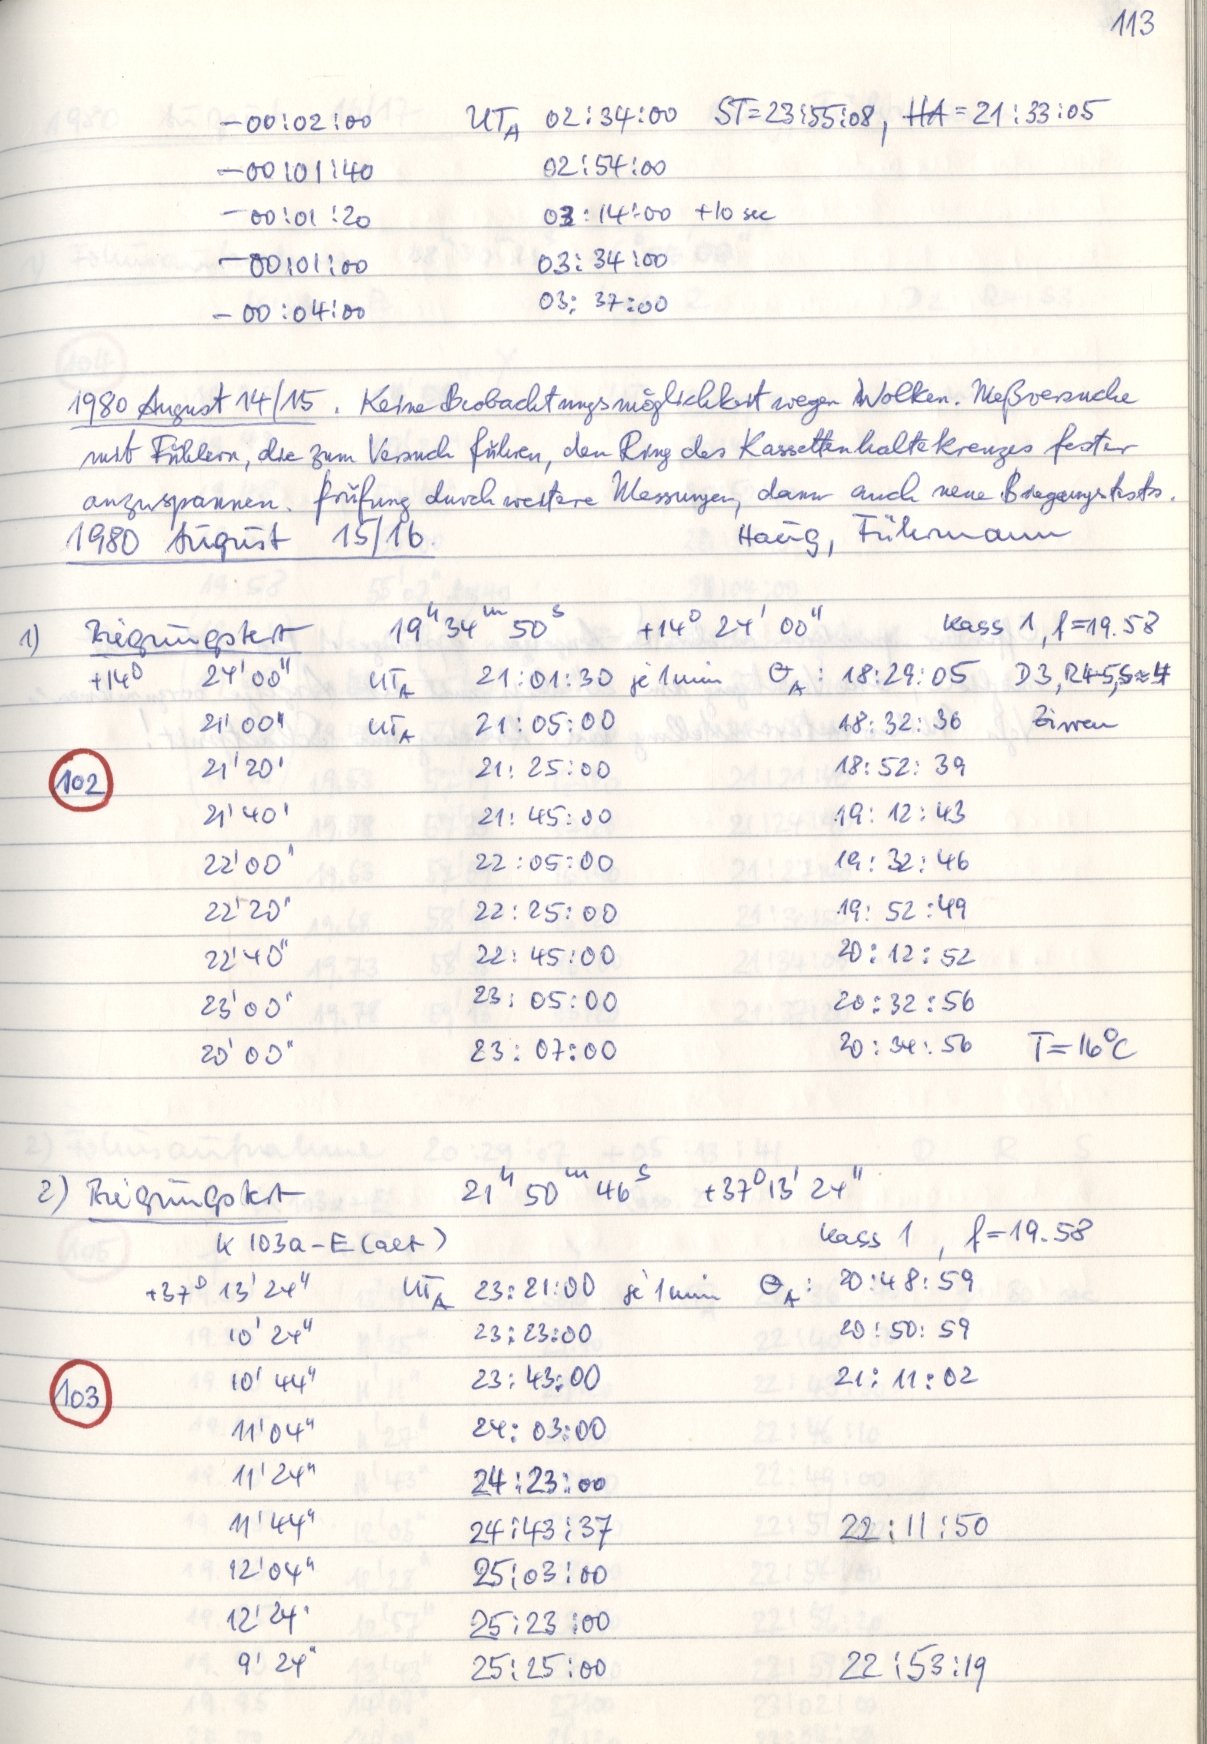 113
-00:02:00 UT_A 02:34:00 ST=23:55:08, HA=21:33:05
-00:01:40 02:54:00
-00:01:20 03:14:00 +10 sec
-00:01:00 03:34:00
-00:04:00 03:37:00
1980 August 14/15. Keine Beobachtungsmöglichkeit wegen Wolken. Meßversuche
mit Fühlern, die zum Versuch führen, den Ring des Kassettenhaltekreuzes fester
anzuspannen. Prüfung durch weitere Messungen, dann auch neue Biegungstests.
1980 August 15/16 Haug, Führmann
1) Biegungstest 19h 34m 50s +14° 24' 00" Kass 1, f=19.58
+14° 24'00" UT_A 21:01:30 je 1min Θ_A: 18:29:05 D3, R4-5, S≈4
21'00" UT_A 21:05:00 18:32:36 Zirren
102 21'20' 21:25:00 18:52:39
21'40' 21:45:00 19:12:43
22'00" 22:05:00 19:32:46
22'20" 22:25:00 19:52:49
22'40" 22:45:00 20:12:52
23'00' 23:05:00 20:32:56
20'00" 23:07:00 20:34:56 T=16°C
2) Biegungstest 21h 50m 46s +37° 13' 24"
K 103a-E (alt) Kass 1, f=19.58
+37° 13' 24" UT_A 23:21:00 je 1min Θ_A: 20:48:59
10' 24" 23:23:00 20:50:59
103 10' 44" 23:43:00 21:11:02
11' 04" 24:03:00
11' 24" 24:23:00
11' 44" 24:43:37 22:11:50
12' 04" 25:03:00
12' 24' 25:23:00
9' 24" 25:25:00 22:53:19